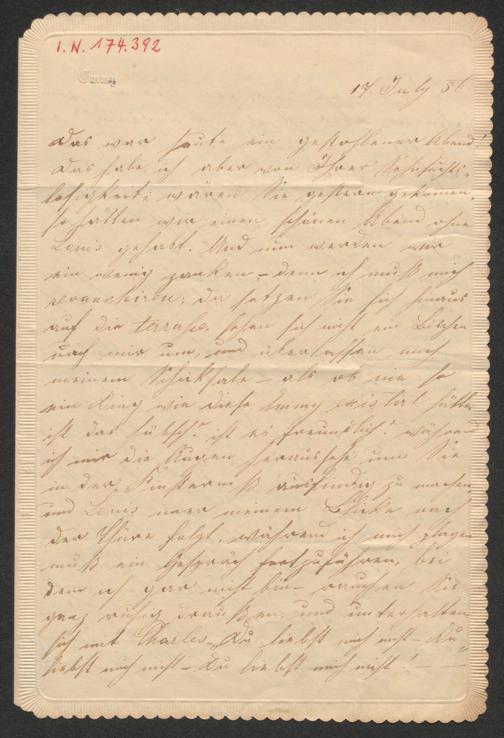 I. N. 174.392
Emmy
17 July 56
Das war heute ein gestohlener Abend!
Das habe ich aber von Ihrer Sehnsuchts-
losigkeit; waren Sie gestern gekommen,
so hatten wir einen schönen Abend ohne
Louis gehabt. Und nun werden wir
ein wenig zanken – denn ich muß mich
revanchiren; da setzen Sie sich hinaus
auf die terrasse, sehen sich nicht ein Bischen
nach mir um, und überlassen mich
meinem Schiksale – als ob nie so
ein Ding wie diese Emmy existirt hätte,
ist das hübsch? ist es freundlich? während
ich mir die Augen heraussehe um Sie
in der Finsterniß ausfindig zu machen,
und Louis immer meinem Blicke nach
der Thüre folgt, während ich mich plagen
muß ein Gespräch fortzuführen, bei
dem ich gar nicht bin – rauchen Sie
ganz ruhig draußen, und unterhalten
sich mit Charles – „Du liebst mich nicht – du
liebst mich nicht – du liebst mich nicht!" –